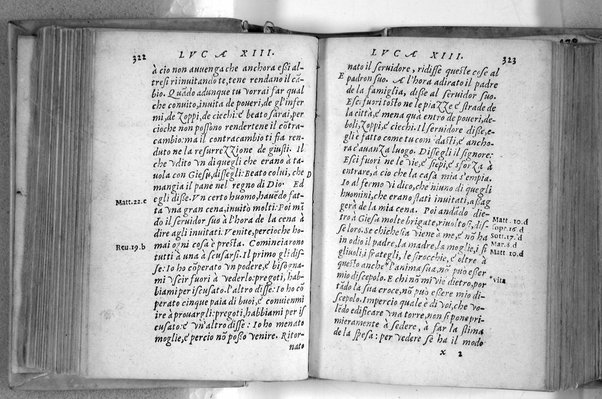 322
LVCAE XIII.
à cio non auuenga che anchora eßi al-
tresi riinuitando te, tene rendano il cã-
bio. Quãdo adunque tu vorrai far qual
che conuito, inuita de poueri, de gl'infer
mi, de Zoppi, de ciechi: e beato sarai, per
cioche non poßono rendertene il cõtra-
cambio: ma il contracambio ti fia ren-
duto ne la resurrezzione de giusti. Il
che vdito vn di quegli che erano à ta-
uola con Giesu, dißegli: Beato colui, che
mangia il pane nel regno di Dio. Ed
D
Matt. 22. e
egli diße. Vn certo huomo, hauẽdo fat-
ta vna gran cena, inuitò molti: Poi mã
do il seruidor suo à l'hora de la cena à
dire agli inuitati. Venite, percioche ho-
Reu. 19. b
mai ogni cosa è presta. Cominciarono
tutti à vna à scusarsi. Il primo gli dis-
se: Io ho cõperato vn podere, è bisogna-
mi vscir fuori à vederlo: pregoti, hab-
biami per iscusato. l'altro diße: Io ho cõ
perato cinque paia di buoi, e conuienmi
ire à prouargli: pregoti, habbiami per is
cusato: è vn'altro diße: Io ho menato
moglie, e percio nõ poßo venire. Ritor-
nato
LVCAE XIII.
323
nato il seruidore, ridiße queste cose al
E
padron suo. A l'hora adirato il padre
de la famiglia, diße al seruidor suo.
Esci fuori tosto ne le piazze e strade de
la città, e mena quà entro de poueri, de-
boli, Zoppi, e ciechi. Il seruidore diße, e-
gli è fatto come tu com'dasti, e ancho-
ra c'auanza luogo. Dißegli il signore.
Esci fuori ne le vie, e siepi, e sforza à
entrare, à cio che la casa mia s'empia.
Io al fermo vi dico, che niuno di quegli
huomini, che erano stati inuitati, aßag-
gerà de la mia cena. Poi andado die-
tro à Giesu molte brigate, riuoltosi, dis-
Matt. 10. d
se loro. Se chiche sia viene à me, e nõ ha
in odio il padre, la madre, la moglie, i fi
Mar. 8. d
gliuoli, i frategli, le sirocchie, e oltre à
Matt. 10. d
questo anche "l'anima sua, nõ può esser
"vita
mio discepolo. E chi nõ mi viẽ dietro, por
tãdo la sua croce, nõ può eßere mio di-
scepolo. Impercio quale è di voi, che vo-
lẽdo edificare vna torre, non si pone pri-
mieramente à sedere, à far la stima
de la spesa: per vedere se ha il modo
x 2